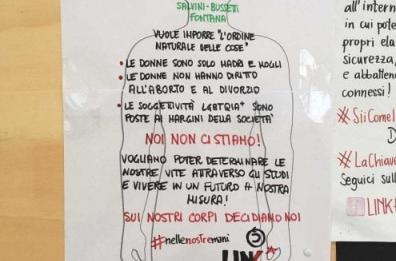 SALVINI-BUSSETI
FONTANA
VUOLE IMPORRE "L'ORDINE
NATURALE DELLE COSE"
• LE DONNE SONO SOLO MADRI E MOGLI
• LE DONNE NON HANNO DIRITTO
ALL'ABORTO E AL DIVORZIO
• LE SOGGETIVITÀ LGBTQIA+ SONO
POSTE AI MARGINI DELLA SOCIETÀ
NOI NON CI STIAMO!
VOGLIAMO POTER DETERMINARE LE
NOSTRE VITE ATTRAVERSO GLI STUDI
E VIVERE IN UN FUTURO A NOSTRA
MISURA!
SUI NOSTRI CORPI DECIDIAMO NOI
#nellenostremani
LINK
all'intern
in cui pote
propri ela
sicurezza,
e abbatten
connessi!
#SiiComeI
D
#LaChiave
Seguici sull
LINK